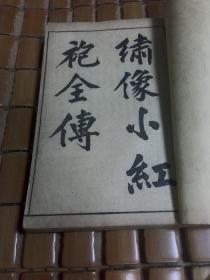 繡像小紅
袍全傳